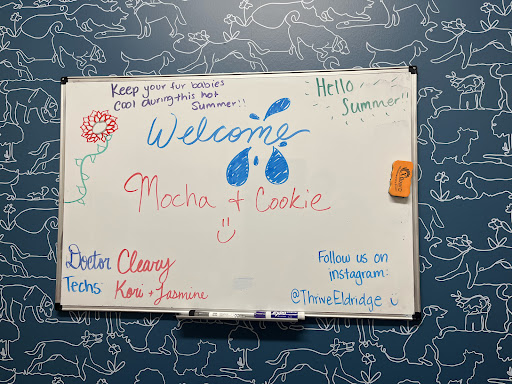 Keep your fur babies
cool during this hot
Summer!!
Hello
Summer!!
Welcome
Mocha + Cookie
Doctor Cleary
Techs Kori + Jasmine
Follow us on
instagram:
@ThriveEldridge